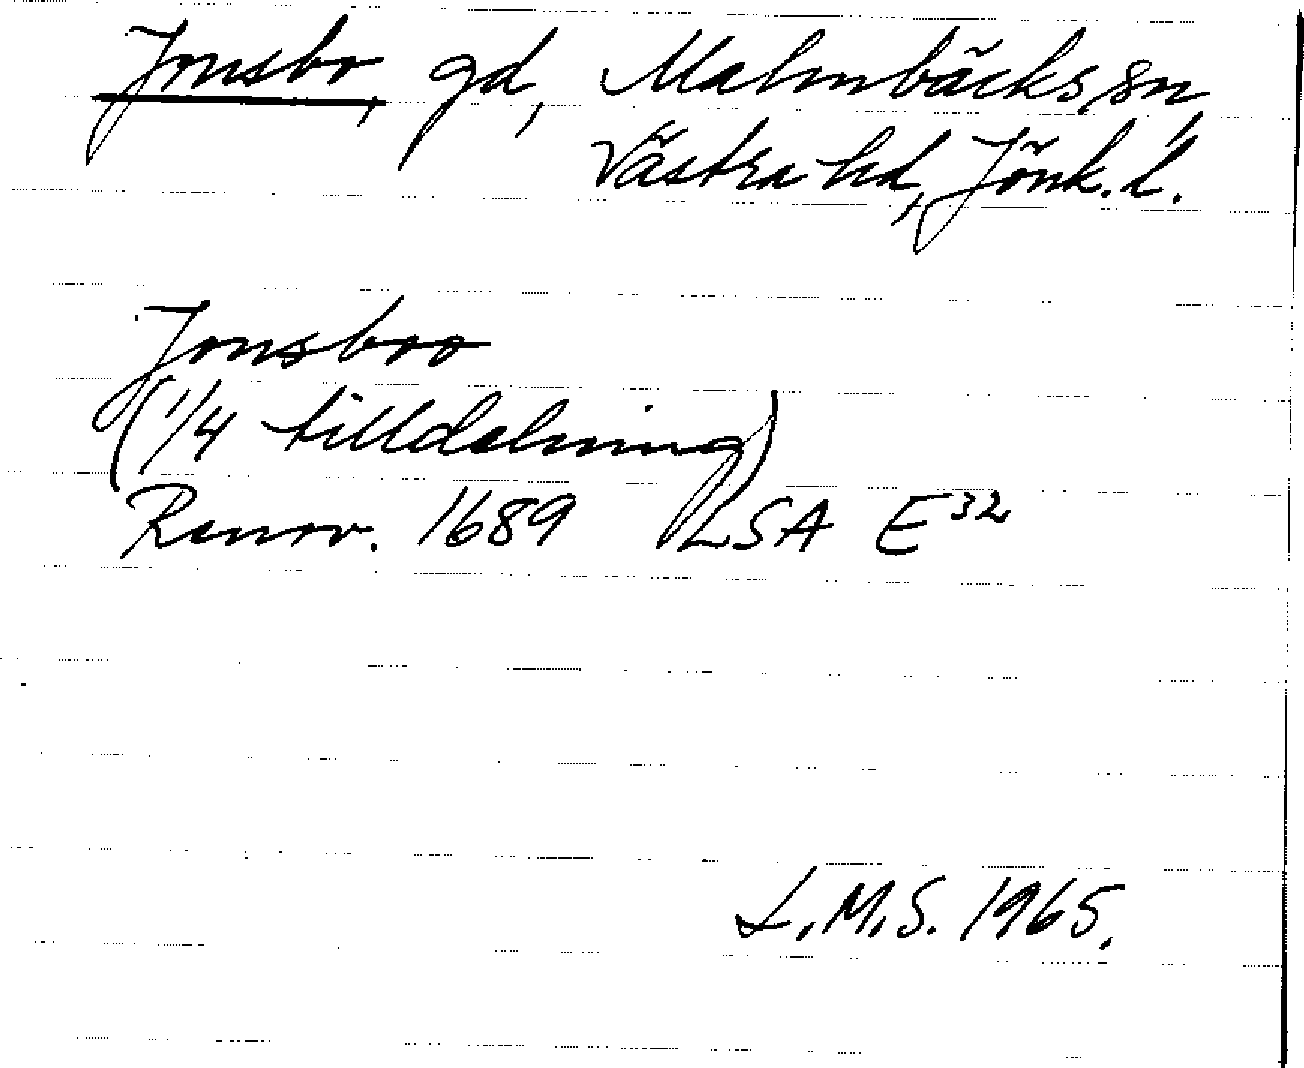 Jonsbo, gd, Malmbäcks sn
Västra hd, Jönk. l.
Jonsboo
(1/4 tilldelning)
Renov. 1689 LSA E³²
L.M.S. 1965.